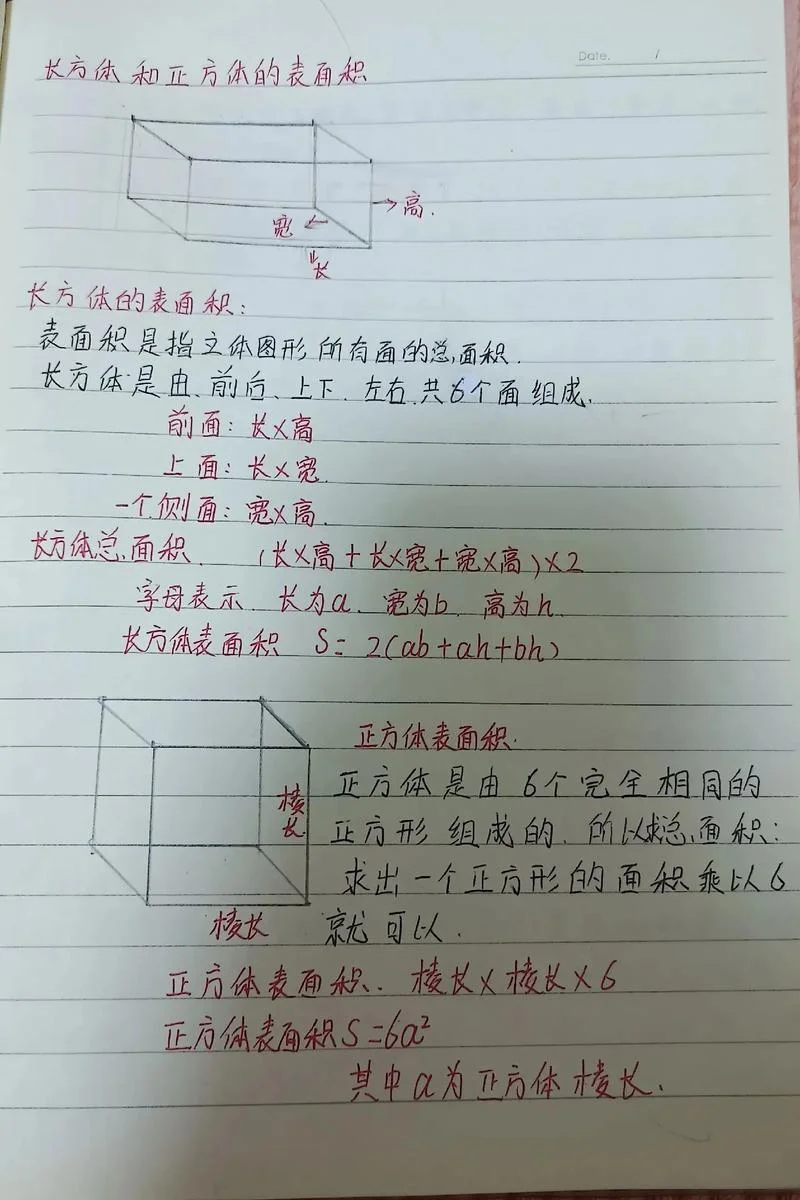 Date. /
长方体和正方体的表面积
高.
宽
长
长方体的表面积:
表面积是指立体图形所有面的总面积.
长方体是由、前后、上下、左右.共6个面组成.
前面: 长×高
上面: 长×宽.
一个侧面: 宽×高.
长方体总面积. (长×高+长×宽+宽×高)×2
字母表示 长为a. 宽为b. 高为h.
长方体表面积 S= 2(ab+ah+bh)
正方体表面积.
正方体是由6个完全相同的
棱长
正方形组成的.所以求总面积:
求出一个正方形的面积乘以6
棱长
就可以.
正方体表面积. 棱长×棱长×6
正方体表面积S=6a²
其中a为正方体棱长.